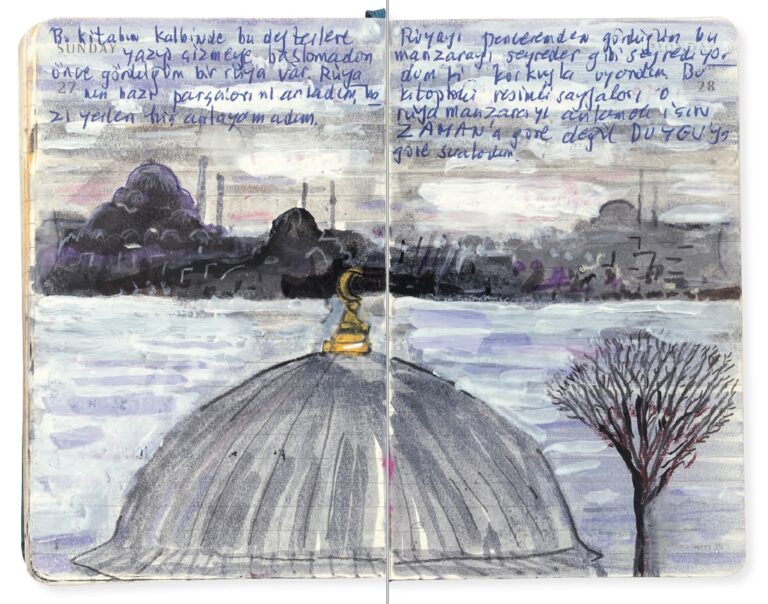 Bu kitabın kalbinde bu defterlere
SUNDAY
yazıp çizmeye başlamadan
önce gördüğüm bir rüya var. Rüya
27
nın bazı parçalarını anladım, ba
zı yerleri hiç anlayamadım.
Rüyayı penceremden gördüğüm bu
manzarayı seyreder gibi seyrediyor-
dum ki korkuyla uyandım. Bu
28
kitaptaki resimli sayfaları o
rüya manzarayı anlamak için
ZAMAN'a göre değil DUYGUYA
göre sıraladım.